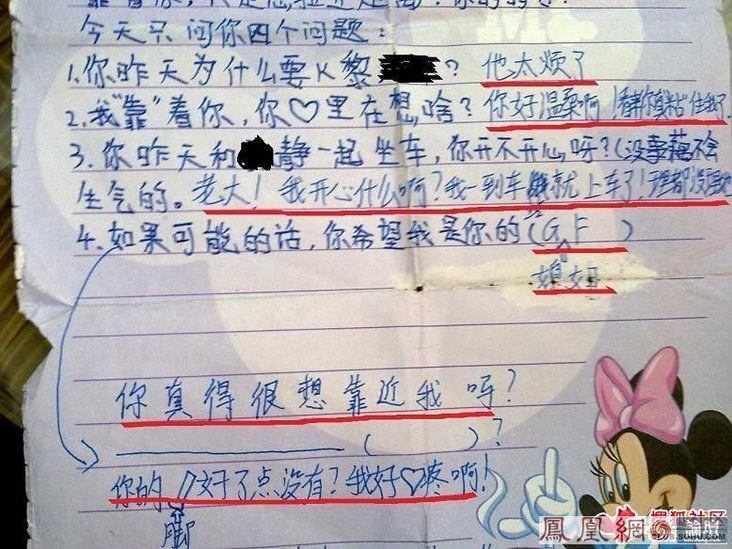 今天只问你四个问题：
1.你昨天为什么要K黎？他太烦了
2.我"靠"着你，你♡里在想啥？你好温柔啊！
3.你昨天和静一起坐车，你开不开心呀？(没事藕不会
生气的。老大！我开心什么啊？我一到车就上车了！理都没理她
4.如果可能的话，你希望我是你的(G F )
媳妇
你真得很想靠近我吗？
( )?
你的 好了点没有？我好♡疼啊！
脚
凤凰网
搜狐社区
SOHU.COM